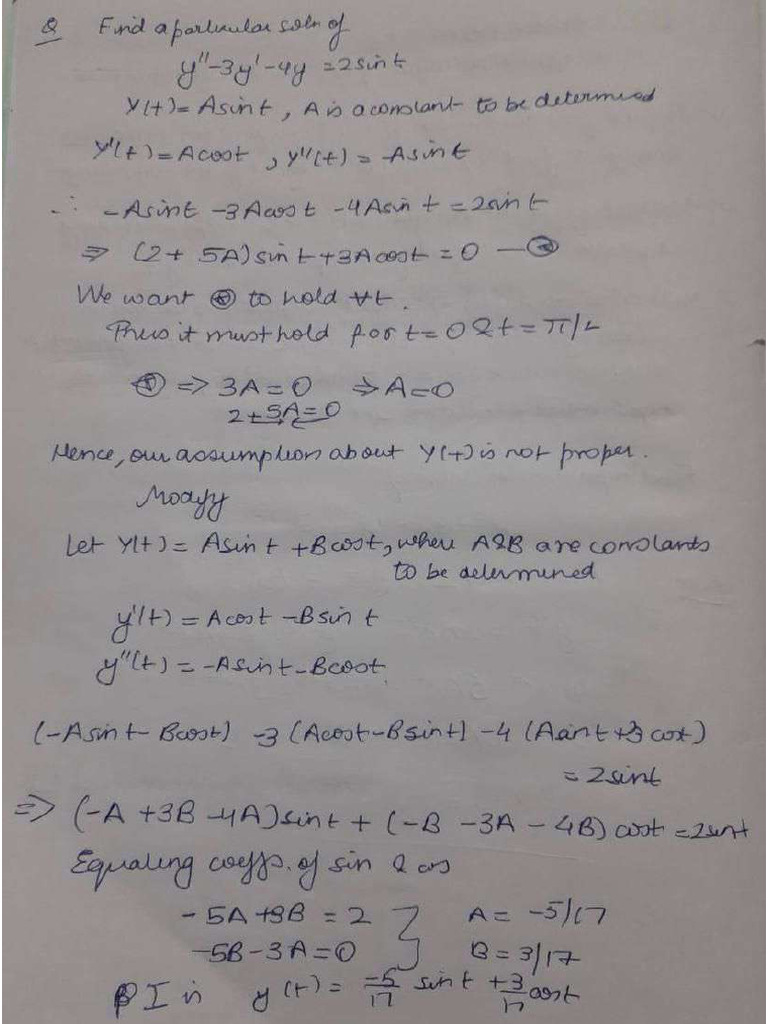 Q Find a particular soln of
y'' - 3y' - 4y = 2sin t
Y(t) = A sin t , A is a constant to be determined
Y'(t) = A cos t , Y''(t) = - A sin t
∴ - A sin t - 3A cos t - 4A sin t = 2 sin t
⇒ (2 + 5A) sin t + 3A cos t = 0 — ⊛
We want ⊛ to hold ∀t.
Thus it must hold for t = 0 & t = π/2
⊛ ⇒ 3A = 0 ⇒ A = 0
2 + 5A = 0
Hence, our assumption about Y(t) is not proper.
Modify
Let Y(t) = A sin t + B cos t, where A & B are constants
to be determined
y'(t) = A cos t - B sin t
y''(t) = - A sin t - B cos t
(-A sin t - B cos t) - 3 (A cos t - B sin t) - 4 (A sin t + B cos t)
= 2 sin t
⇒ (-A + 3B - 4A) sin t + (-B - 3A - 4B) cos t = 2 sin t
Equating coeffs. of sin & cos
- 5A + 3B = 2 } A = -5/17
-5B - 3A = 0 } B = 3/17
P I is y(t) = -5/17 sin t + 3/17 cos t